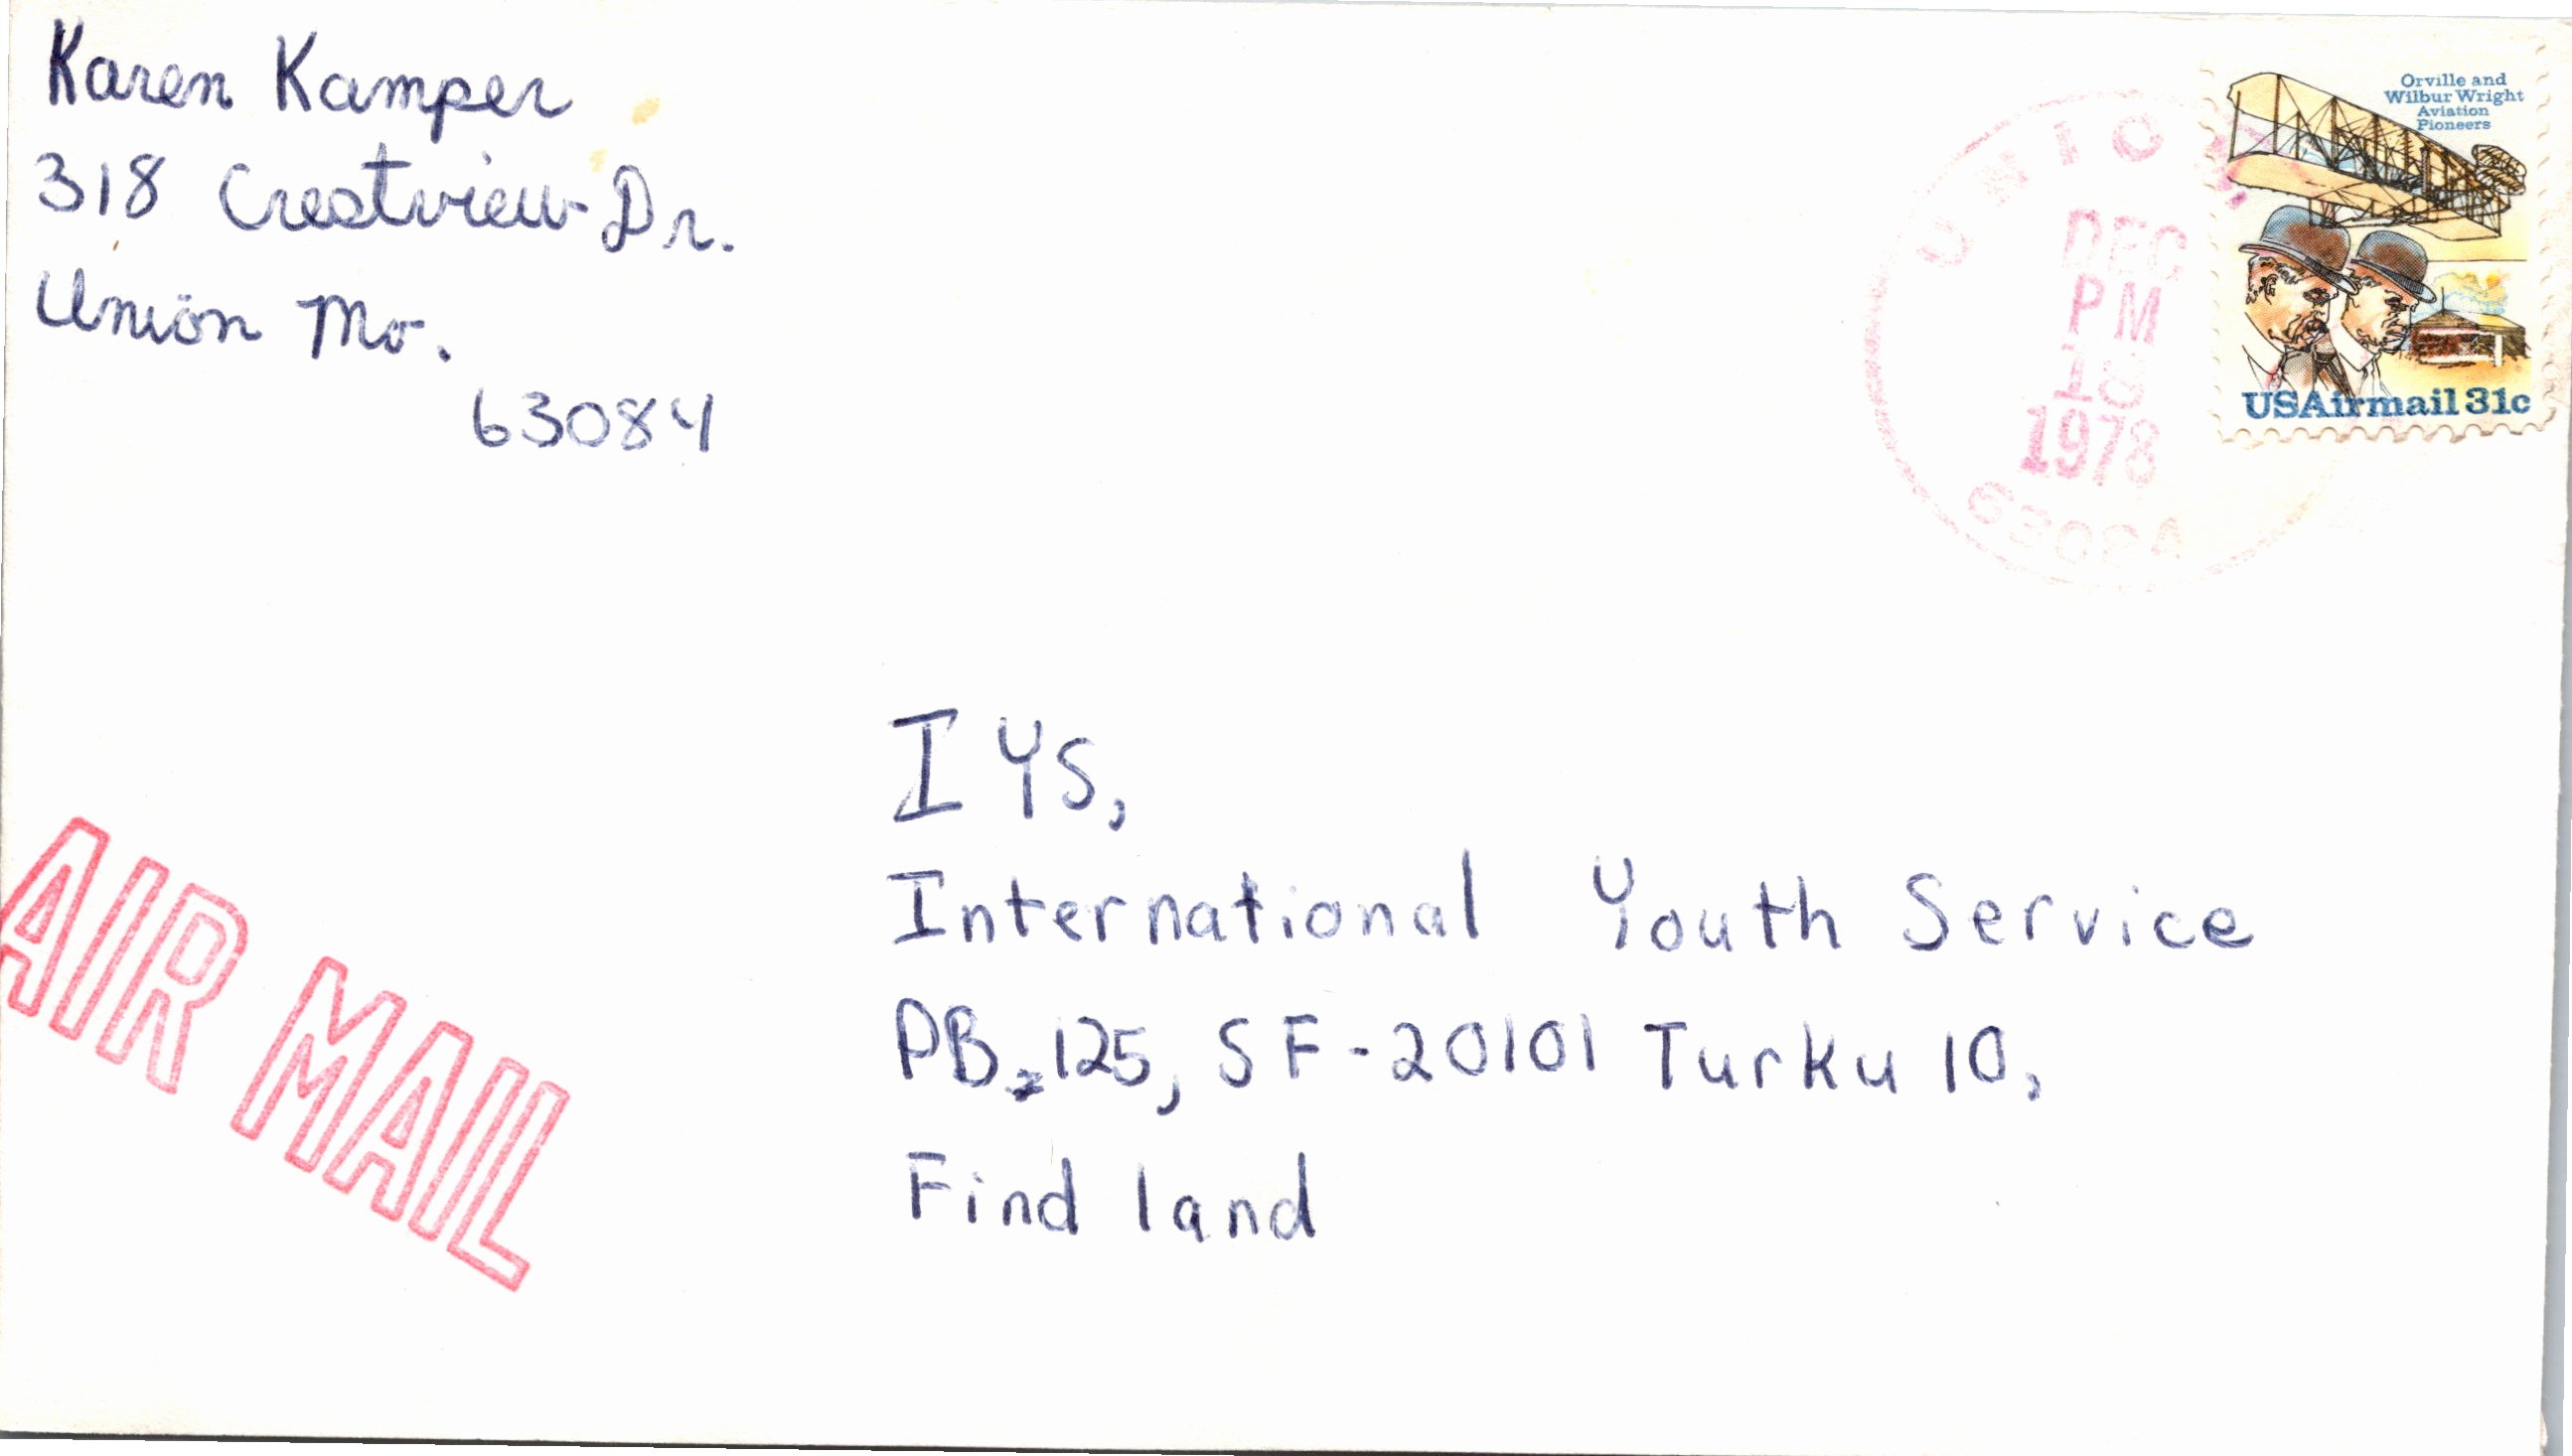 Karen Kamper
318 Crestview Dr.
Union Mo.
63084
Orville and
Wilbur Wright
Aviation
Pioneers
USAirmail 31c
UNION
DEC
PM
18
1978
63084
AIR MAIL
IYS,
International Youth Service
PB. 125, SF-20101 Turku 10,
Find land